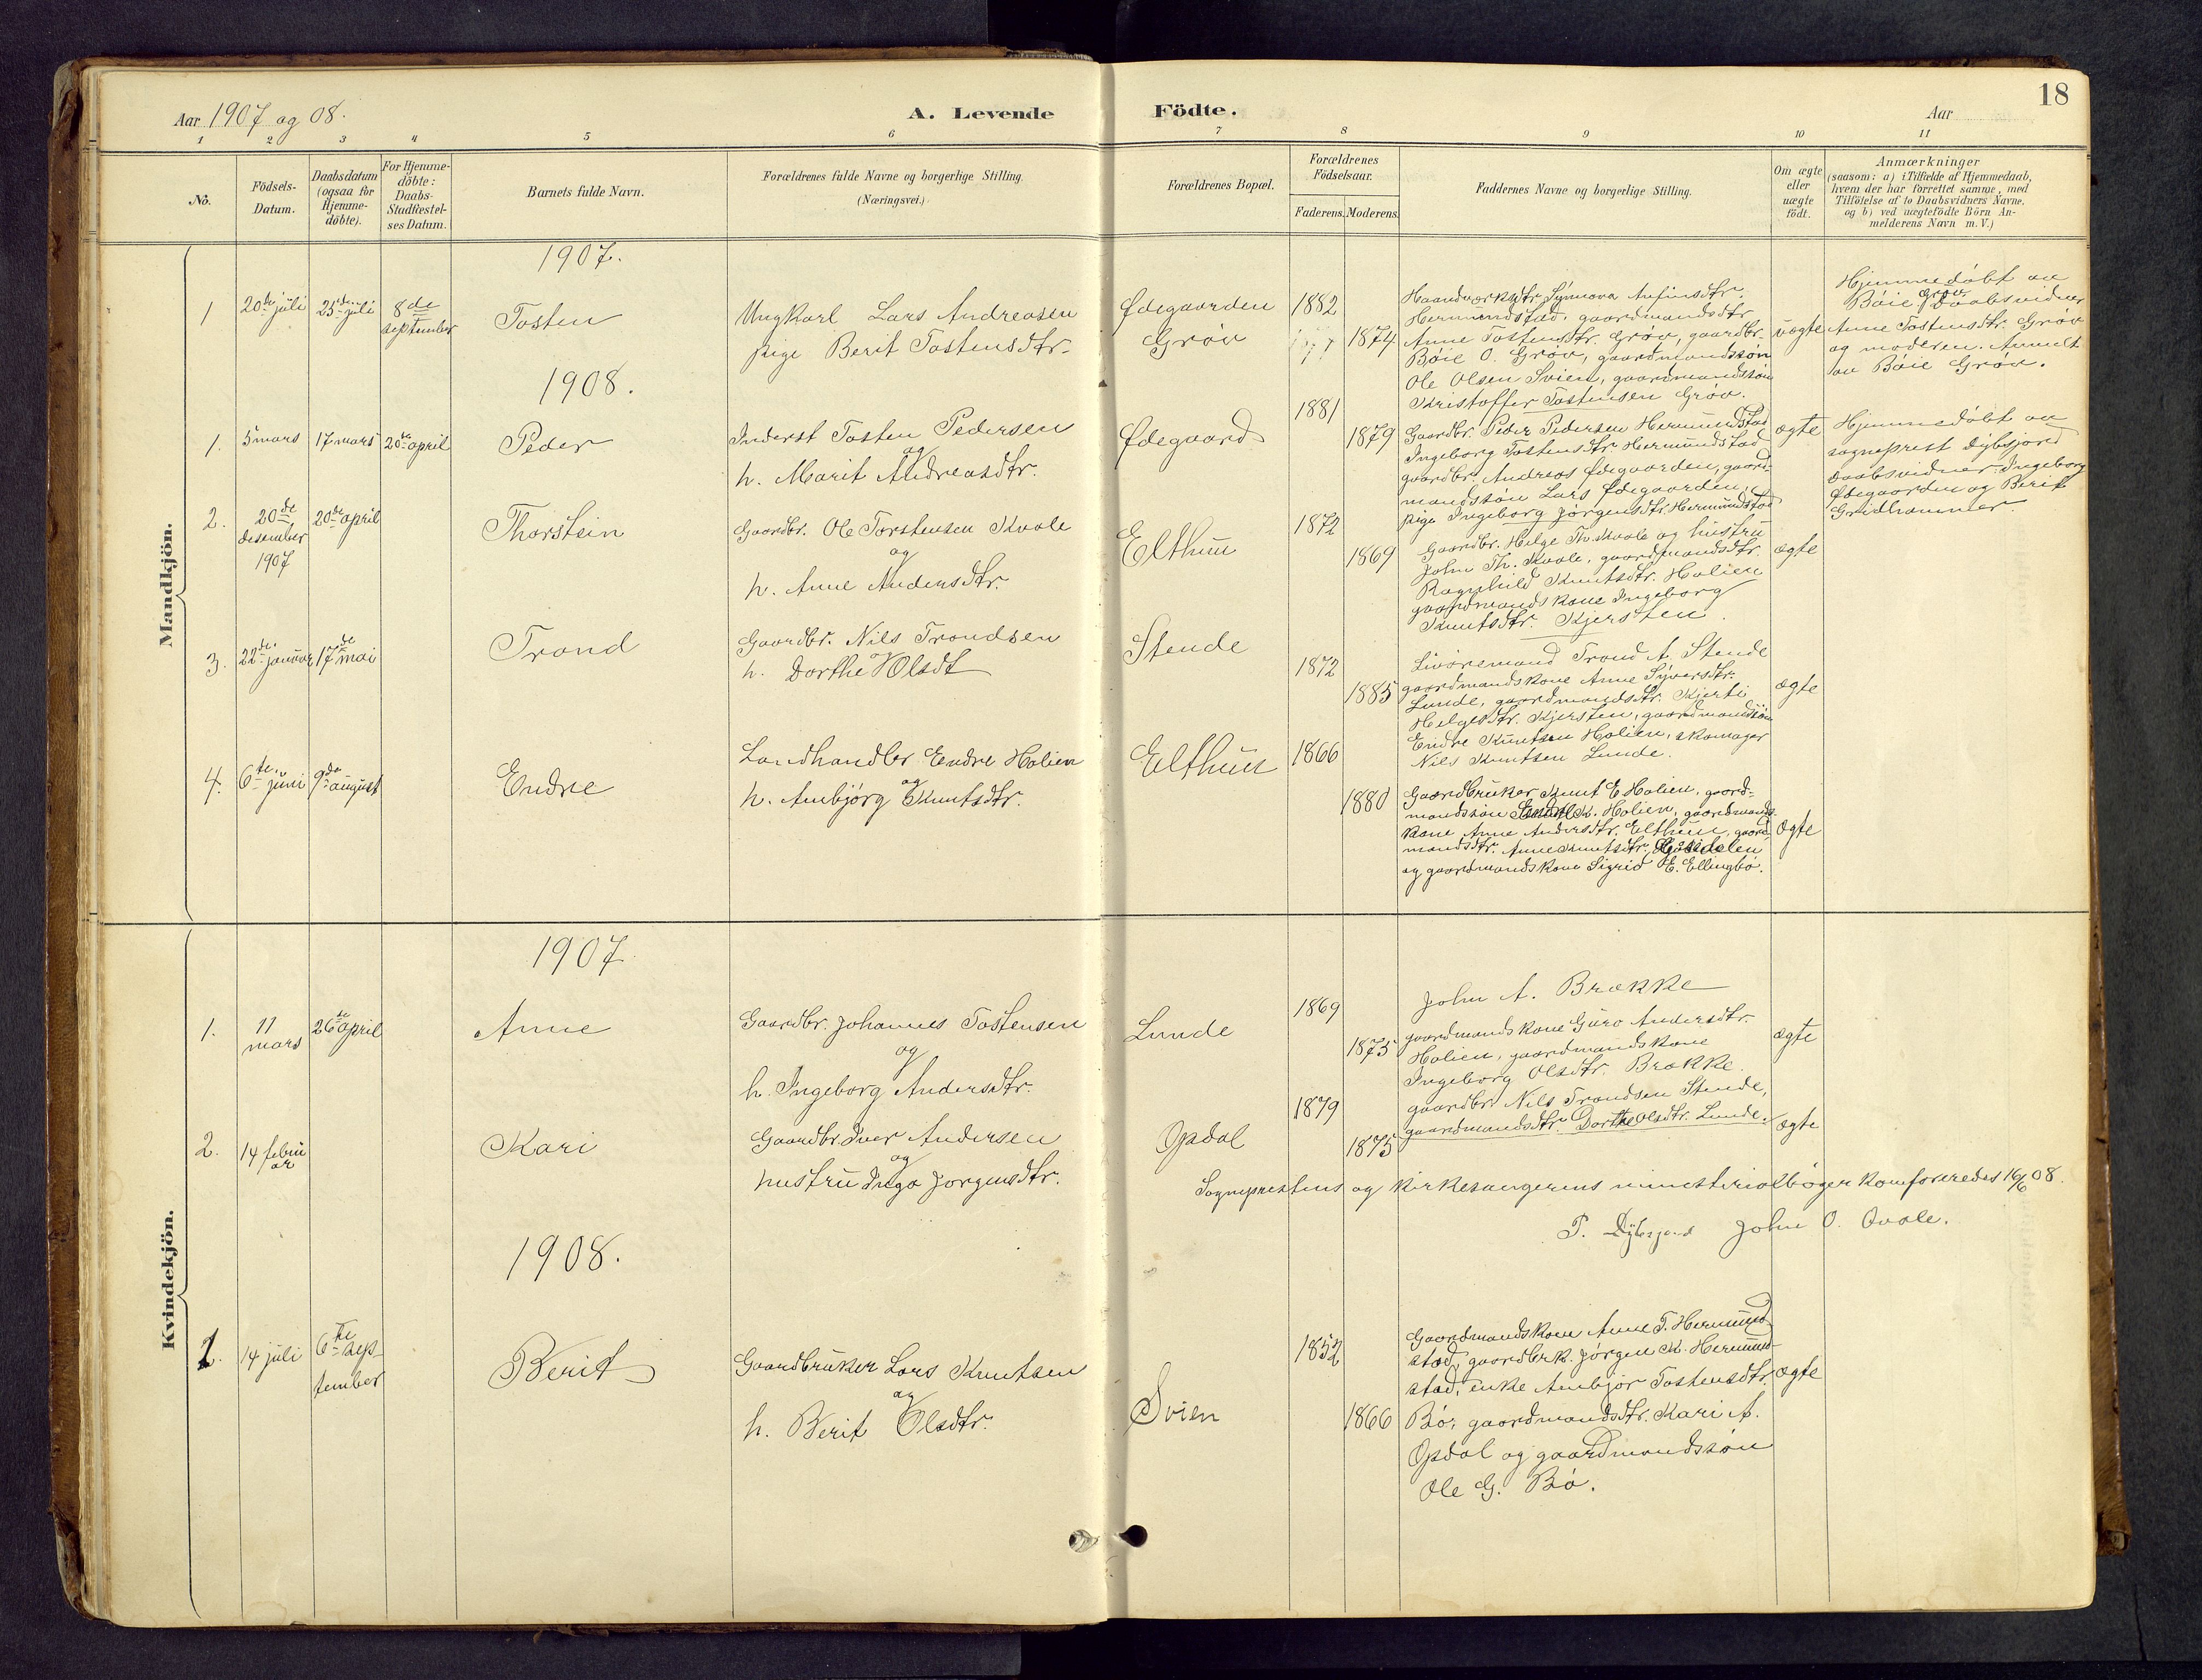 18
Aar 1907 og 08.
A. Levende Födte.
Aar
1 2 3 4 5 6 7 8 9 10 11
No.
Födsels-
Datum.
Daabsdatum
(ogsaa for
Hjemme-
döbte).
For Hjemme-
döbte:
Daabs-
Stadfæstel-
ses Datum.
Barnets fulde Navn.
Forældrenes fulde Navne og borgerlige Stilling
(Næringsvei.)
Forældrenes Bopæl.
Forældrenes
Födselsaar.
Faderens. Moderens.
Faddernes Navne og borgerlige Stilling.
Om ægte
eller
uægte
födt.
Anmærkninger
(saasom: a) i Tilfælde af Hjemmedaab,
hvem der har forrettet samme, med
Tilföielse af to Daabsvidners Navne,
og b) ved uægtefödte Börn An-
melderens Navn m. V.)
Mandkjön.
1907.
1
20de juli
25de juli
8de
september
Tosten
Ungkarl Lars Andreasen
pige Berit Tostensdtr.
Ødegaarden
Grøv
1882
1874
Haandverksdtr. Synnøva Anfinsdtr.
Hermundstad, gaardmandsdtr
Anne Tostensdtr. Grøv, gaardbr.
Bøie O. Grøv, gaardmandssøn
Ole Olsen Svien, gaardmandssøn
Kristoffer Tostensen Grøv.
uægte
Hjemmedøbt av
Bøie Grøv, Daabsvidner
Anne Tostensdtr. Grøv
og moderen. Anmeldt
av Bøie Grøv.
1908.
1.
5 mars
17 mars
20de april
Peder
Inderst Tosten Pedersen
og
h. Marit Andreasdtr.
Ødegaard
1881
1879
Gaardbr. Peder Pedersen Hermundstad
Ingeborg Tostensdtr Hermundstad
gaardbr. Andreas Ødegaarden, gaard-
mandssøn Lars Ødegaarden,
pige Ingeborg Jørgensdtr. Hermundstad
ægte
Hjemmedøbt av
sogneprest Dybsjord
Daabsvidner: Ingeborg
Ødegaarden og Berit
Gridhammer.
2.
20de
desember
1907
20de april
Thorstein
Gaardbr. Ole Torstensen Kvale
og
h. Anne Andersdtr.
Elthun
1872
1869
Gaardbr. Helge Th. Kvale og hustru
John Th. Kvale, gaardmandsdtr.
Ragnhild Knutsdtr. Holien
gaardmandskone Ingeborg
Knutsdtr. Kjersten.
ægte
3.
22de januar
17de mai
Trond
Gaardbr. Nils Trondsen
og
h. Dorthe Olsdt
Stende
1872
1885
Livøremand Trond A. Stende
gaardmandskone Anne Syversdtr.
Lunde, gaardmandsdtr. Kjersti
Helgesdtr. Kjersten, gaardmandssøn
Endre Knutsen Holien, skomager
Nils Knutsen Lunde.
ægte
4.
6te juni
9de august
Endre
Landhandler Endre Holien
og
h. Ambjørg Knutsdtr.
Elthun
1866
1880
Gaardbruker Knut E Holien, gaard-
mandssøn K. Holien, gaardmands-
kone Anne Andersdtr. Elthun, gaard-
mandsdtr. Anne Knutsdtr.
og gaardmandskone Sigrid E. Ellingbø.
ægte
Kvindekjön.
1907
1.
11
mars
26de april
Anne
Gaardbr. Johannes Tostensen
og
h. Ingeborg Andersdtr.
Lunde
1869
1875
John A. Brække
gaardmandskone Guro Andersdtr.
Holien, gaardmandskone
Ingeborg Olsdtr. Brække.
gaardbr. Nils Trondsen Stende,
gaardmandsdtr. Dorthe Olsdtr. Lunde.
ægte
2.
14 febru
ar
Kari
Gaardbr. Iver Andersen
og
hustru Inga Jørgensdtr.
Opdal
1879
1875
ægte
Sogneprestens og kirkesangerens ministerialbøger komfereredes 16/6 08.
P. Dybsjord John O. Qvale.
1908.
1.
14 juli
6te sep-
tember
Berit
Gaardbruker Lars Knutsen
og
h. Berit Olsdtr.
Svien
1852
1866
Gaardmandskone Anne T. Hermund-
stad, gaardbrk. Jørgen K. Hermund-
stad, enke Ambjør Tostensdtr.
Bø, gaardmandsdtr. Kari A.
Opdal og gaardmandssøn
Ole G. Bø.
ægte